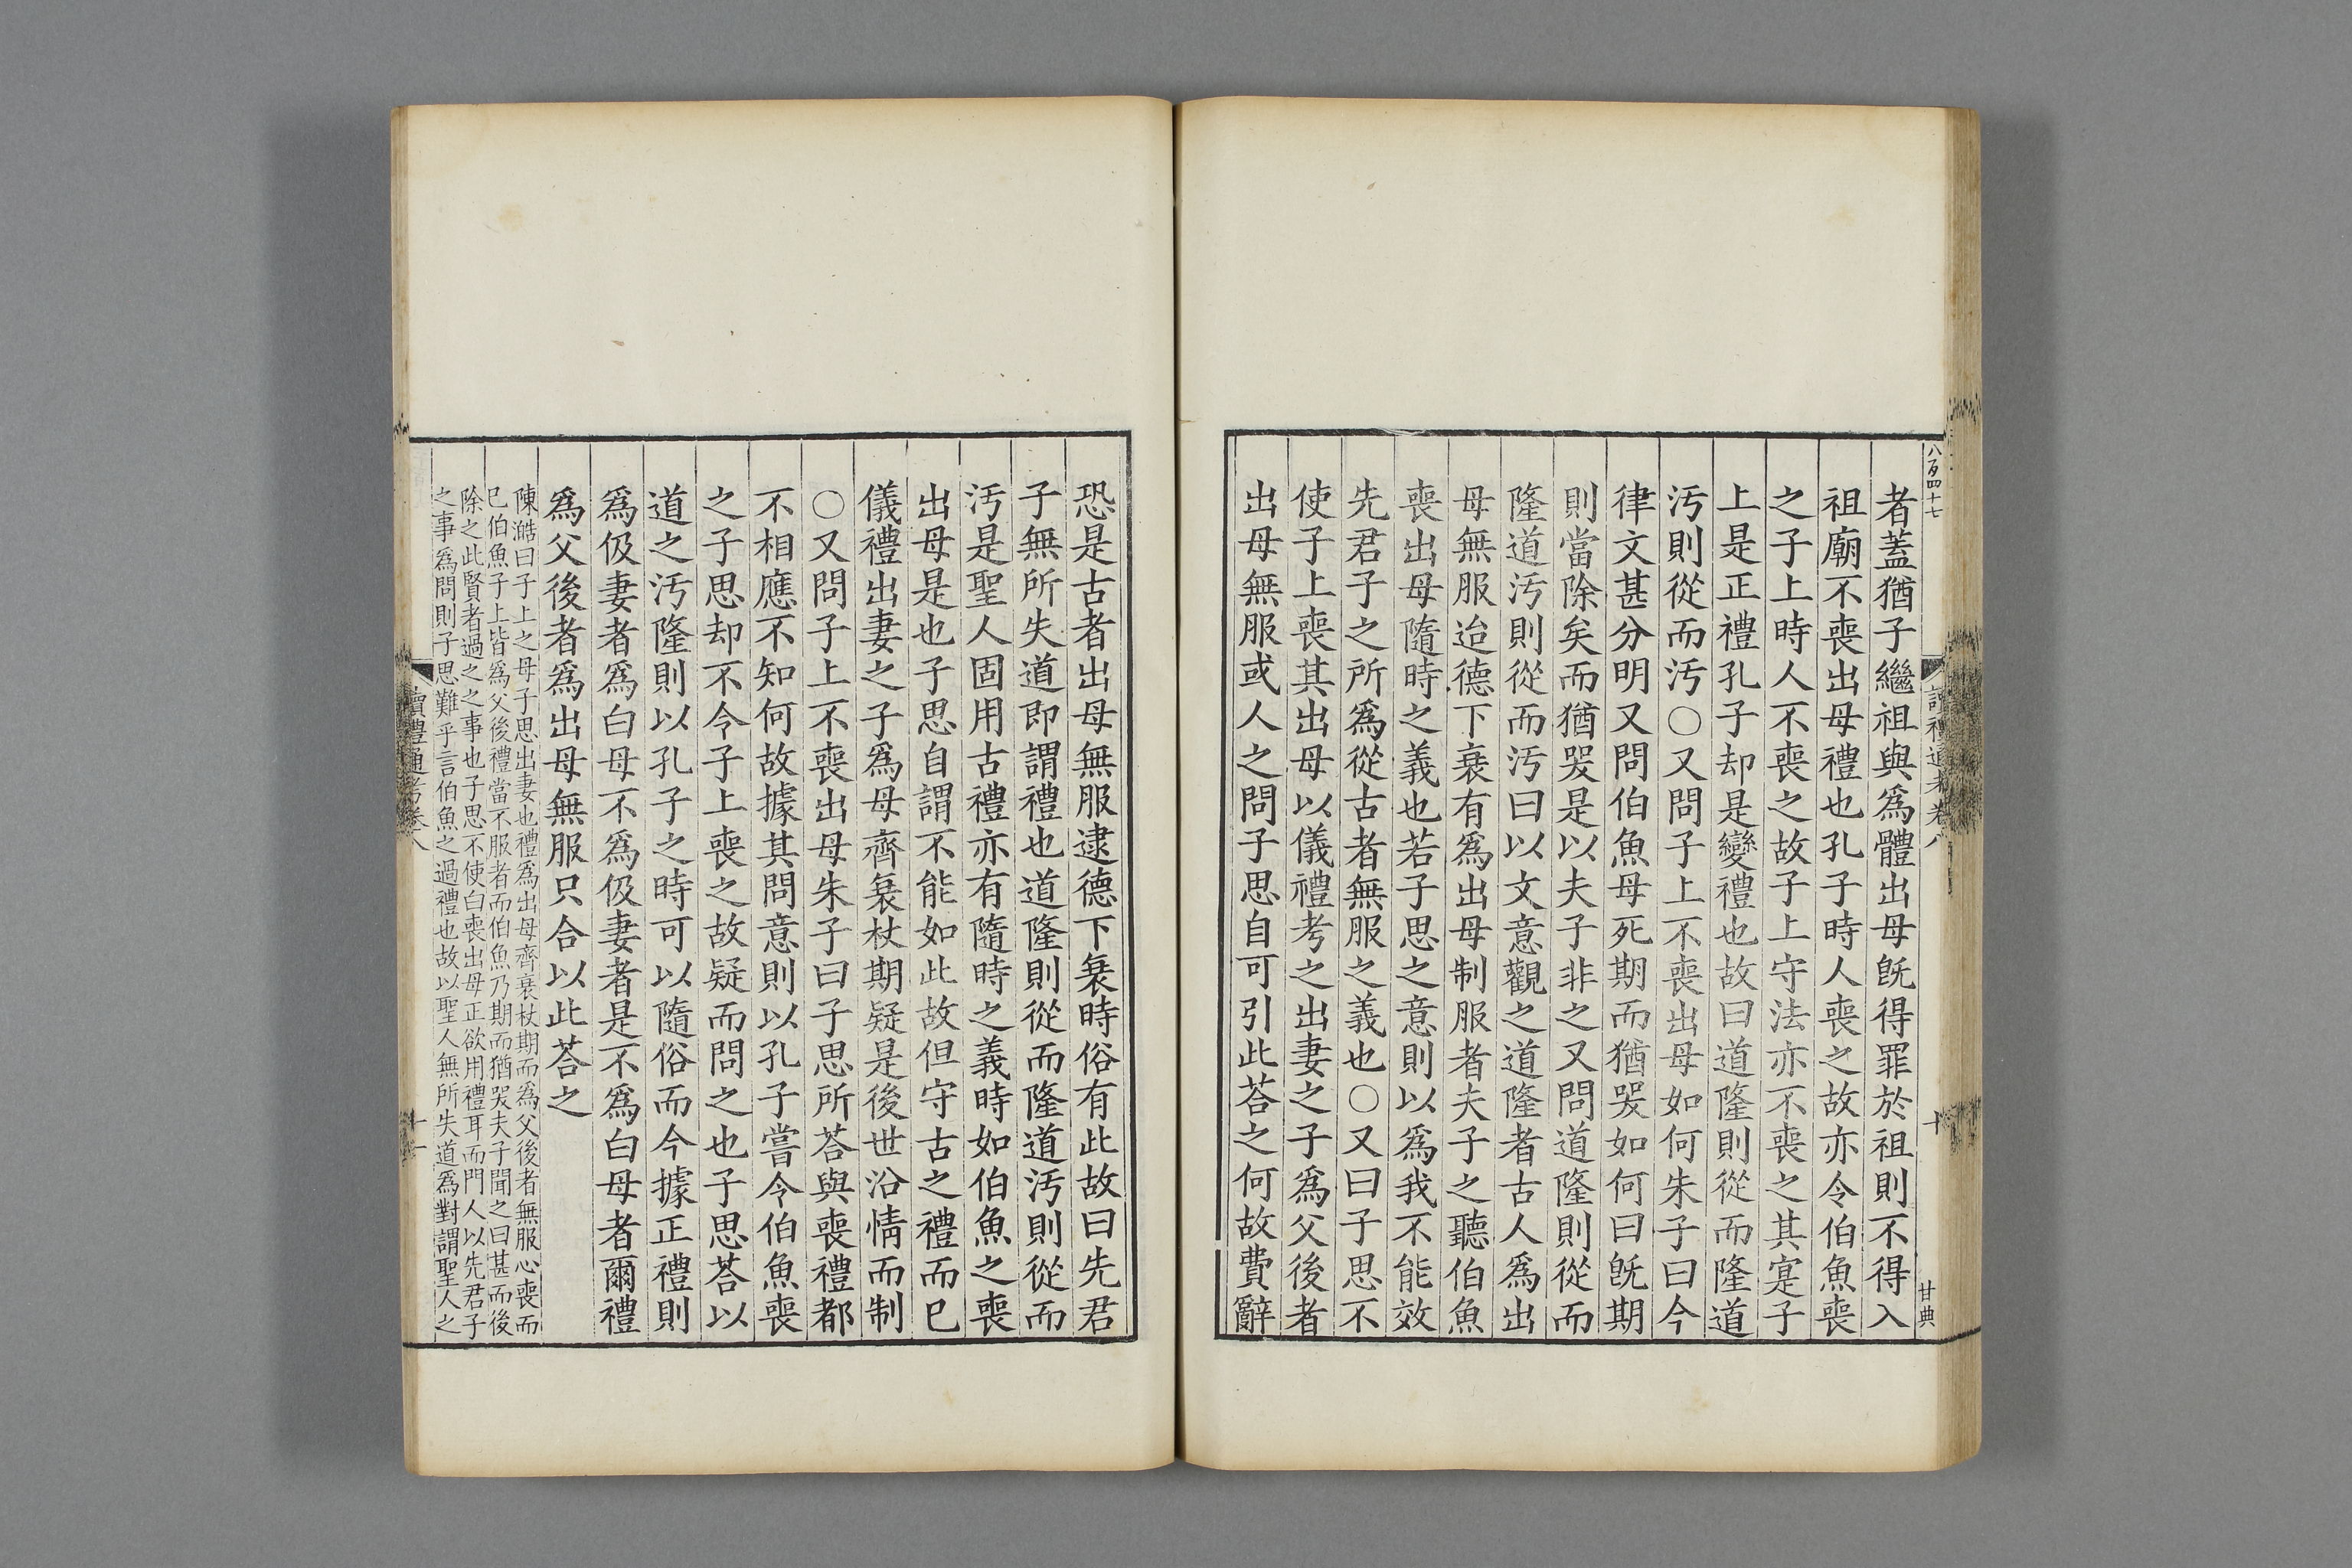 八百四十七
讀禮通考卷八
十
甘典
者蓋猶子繼祖與爲體出母旣得罪於祖則不得入
祖廟不喪出母禮也孔子時人喪之故亦令伯魚喪
之子上時人不喪之故子上守法亦不喪之其寔子
上是正禮孔子却是變禮也故曰道隆則從而隆道
汚則從而汚○又問子上不喪出母如何朱子曰今
律文甚分明又問伯魚母死期而猶哭如何曰旣期
則當除矣而猶哭是以夫子非之又問道隆則從而
隆道汚則從而汚曰以文意觀之道隆者古人爲出
母無服迨德下衰有爲出母制服者夫子之聽伯魚
喪出母隨時之義也若子思之意則以爲我不能效
先君子之所爲從古者無服之義也○又曰子思不
使子上喪其出母以儀禮考之出妻之子爲父後者
出母無服或人之問子思自可引此荅之何故費辭
恐是古者出母無服逮德下衰時俗有此故曰先君
子無所失道即謂禮也道隆則從而隆道汚則從而
汚是聖人固用古禮亦有隨時之義時如伯魚之喪
出母是也子思自謂不能如此故但守古之禮而已
儀禮出妻之子爲母齊衰杖期疑是後世沿情而制
○又問子上不喪出母朱子曰子思所荅與喪禮都
不相應不知何故據其問意則以孔子嘗令伯魚喪
之子思却不令子上喪之故疑而問之也子思荅以
道之汚隆則以孔子之時可以隨俗而今據正禮則
爲伋妻者爲白母不爲伋妻者是不爲白母者爾禮
爲父後者爲出母無服只合以此荅之
陳澔曰子上之母子思出妻也禮爲出母齊衰杖期而爲父後者無服心喪而
已伯魚子上皆爲父後禮當不服者而伯魚乃期而猶哭夫子聞之曰甚而後
除之此賢者過之之事也子思不使白喪出母正欲用禮耳而門人以先君子
之事爲問則子思難乎言伯魚之過禮也故以聖人無所失道爲對謂聖人之
讀禮通考卷八
十一